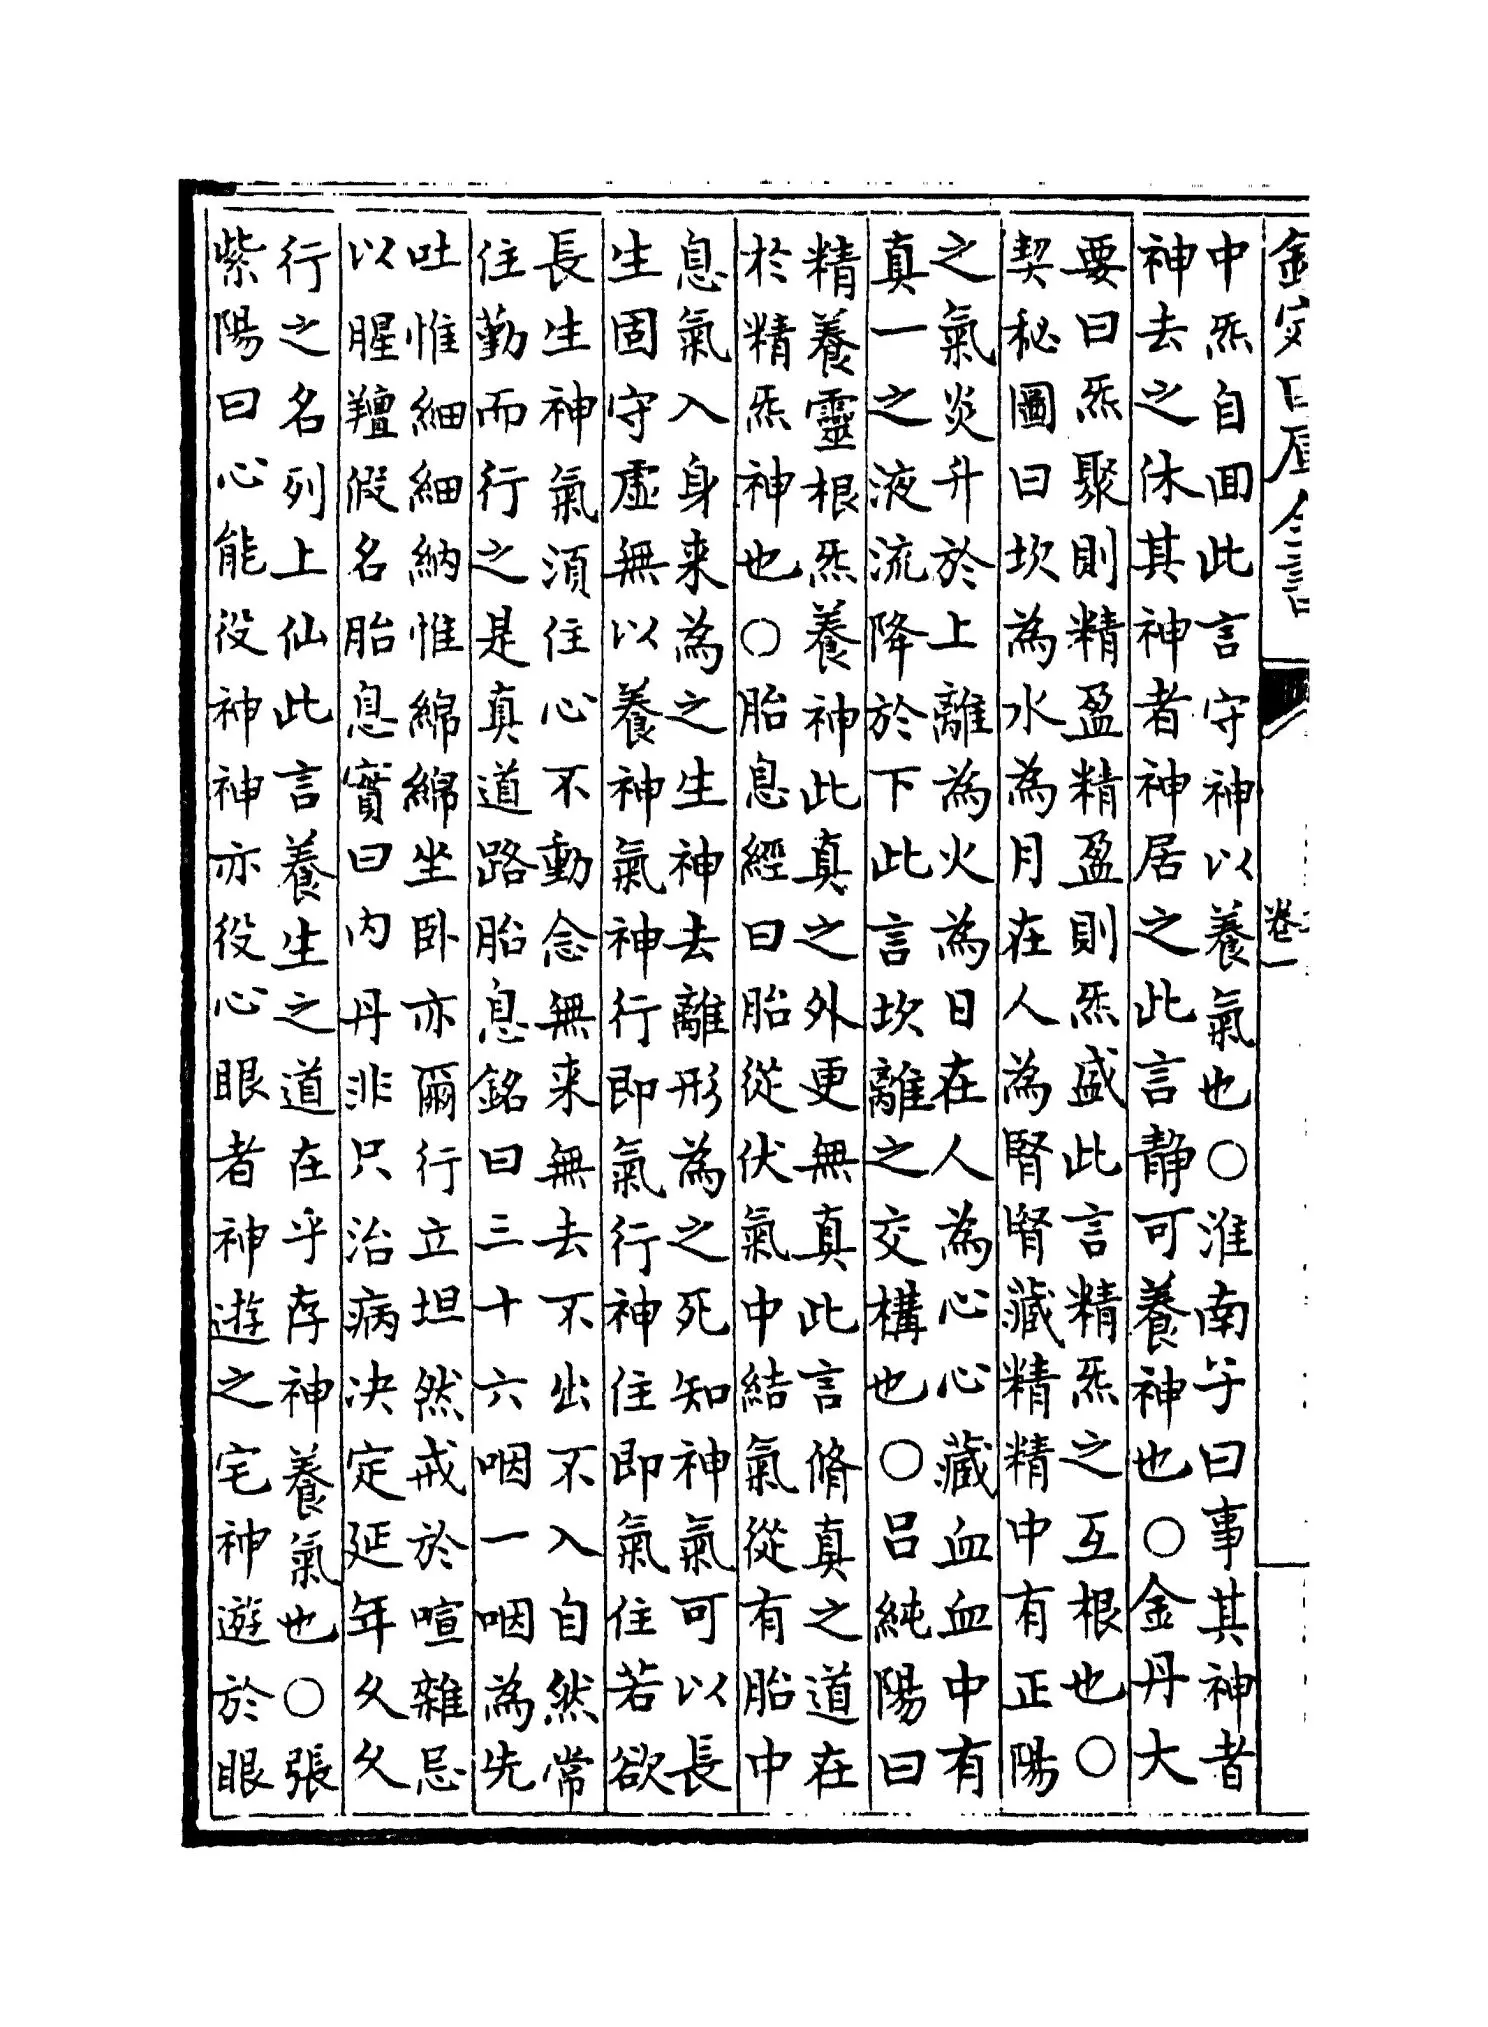 欽定四庫全書
卷一
中炁自回此言守神以養氣也○淮南子曰事其神者
神去之休其神者神居之此言靜可養神也○金丹大
要曰炁聚則精盈精盈則炁盛此言精炁之互根也○
契秘圖曰坎為水為月在人為腎腎藏精精中有正陽
之氣炎升於上離為火為日在人為心心藏血血中有
真一之液流降於下此言坎離之交構也○呂純陽曰
精養靈根炁養神此真之外更無真此言脩真之道在
於精炁神也○胎息經曰胎從伏氣中結氣從有胎中
息氣入身来為之生神去離形為之死知神氣可以長
生固守虛無以養神氣神行即氣行神住即氣住若欲
長生神氣須住心不動念無来無去不出不入自然常
住勤而行之是真道路胎息銘曰三十六咽一咽為先
吐惟細細納惟綿綿坐卧亦爾行立坦然戒於喧雜忌
以腥羶假名胎息實曰内丹非只治病决定延年久久
行之名列上仙此言養生之道在乎存神養氣也○張
紫陽曰心能役神神亦役心眼者神遊之宅神遊於眼